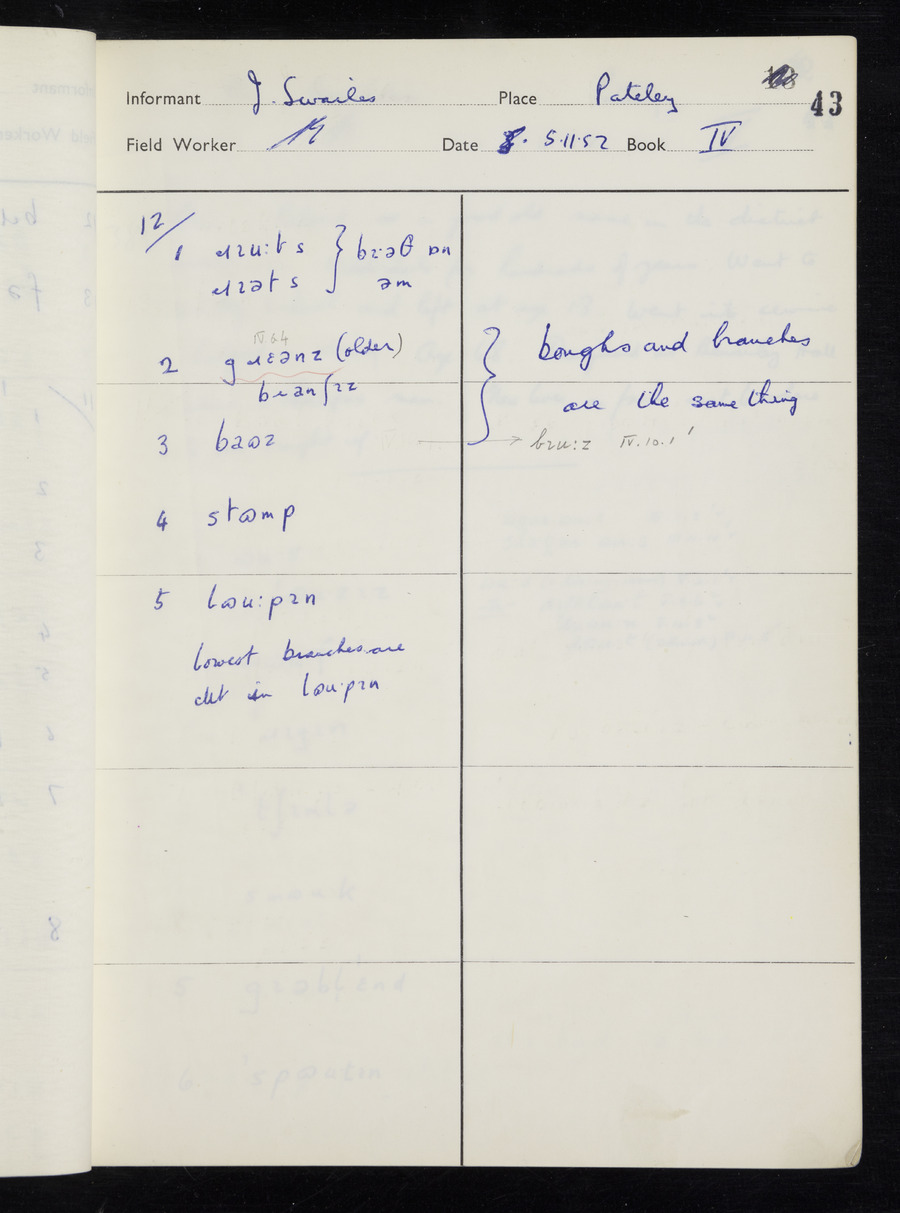 Informant J. Swailes Place Pateley 43
Field Worker Date 5.11.52 Book IV
12/
1 ɹɹuːt s } bɹəθ ɒn
ɹɹət s əm
IV 64
2 gɹɛənz (older)
bɹanʃɪz
} boughs and branches
are the same thing
3 baʊz → bɹuːz IV.10.1
4 stɷmp
5 lɷuːpɹn
lowest branches are
cut in lɷuːpɹn